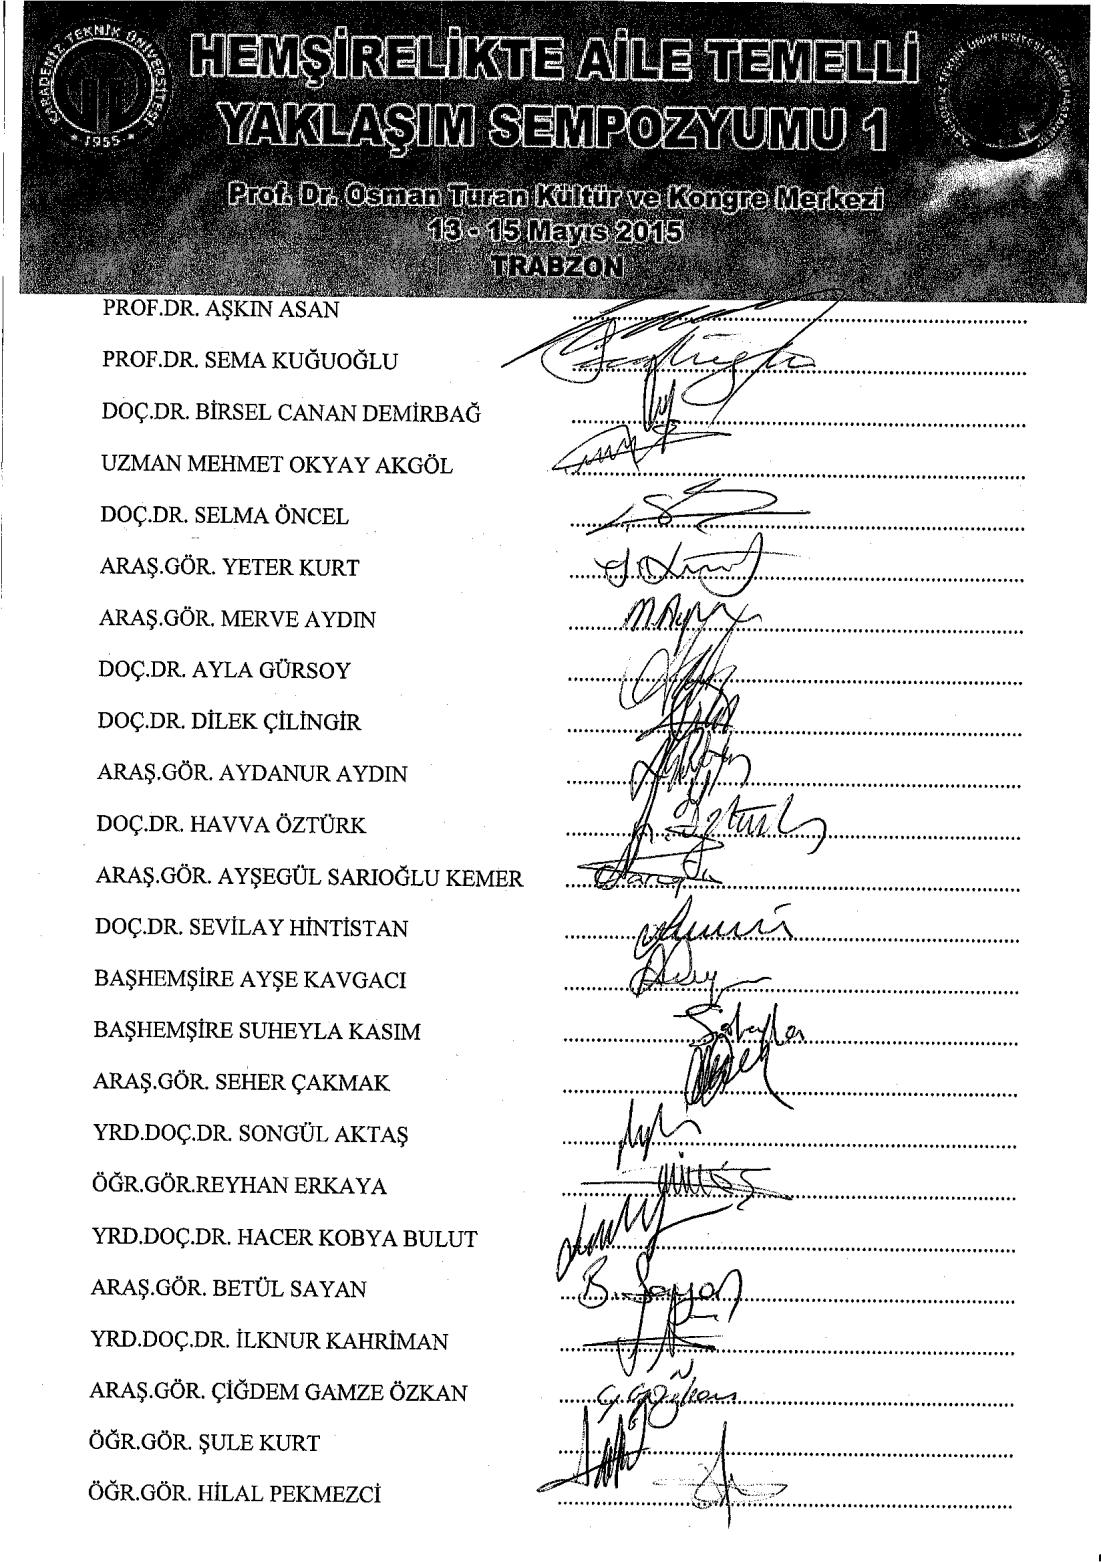 KARADENİZ TEKNİK ÜNİVERSİTESİ
1955
HEMŞİRELİKTE AİLE TEMELLİ
YAKLAŞIM SEMPOZYUMU 1
Prof. Dr. Osman Turan Kültür ve Kongre Merkezi
13 - 15 Mayıs 2015
TRABZON
PROF.DR. AŞKIN ASAN
PROF.DR. SEMA KUĞUOĞLU
DOÇ.DR. BİRSEL CANAN DEMİRBAĞ
UZMAN MEHMET OKYAY AKGÖL
DOÇ.DR. SELMA ÖNCEL
ARAŞ.GÖR. YETER KURT
ARAŞ.GÖR. MERVE AYDIN
DOÇ.DR. AYLA GÜRSOY
DOÇ.DR. DİLEK ÇİLİNGİR
ARAŞ.GÖR. AYDANUR AYDIN
DOÇ.DR. HAVVA ÖZTÜRK
ARAŞ.GÖR. AYŞEGÜL SARIOĞLU KEMER
DOÇ.DR. SEVİLAY HİNTİSTAN
BAŞHEMŞİRE AYŞE KAVGACI
BAŞHEMŞİRE SUHEYLA KASIM
ARAŞ.GÖR. SEHER ÇAKMAK
YRD.DOÇ.DR. SONGÜL AKTAŞ
ÖĞR.GÖR.REYHAN ERKAYA
YRD.DOÇ.DR. HACER KOBYA BULUT
ARAŞ.GÖR. BETÜL SAYAN B. Sayan
YRD.DOÇ.DR. İLKNUR KAHRİMAN
ARAŞ.GÖR. ÇİĞDEM GAMZE ÖZKAN
ÖĞR.GÖR. ŞULE KURT
ÖĞR.GÖR. HİLAL PEKMEZCİ